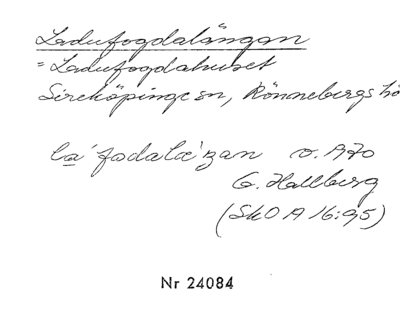 Ladufogdalängan
= Ladufogdahuset
Sireköpinge sn, Rönnebergs hd
la´fodalæ`ŋan o. 1970
G. Hallberg
(SkOA 16:95)
Nr 24084